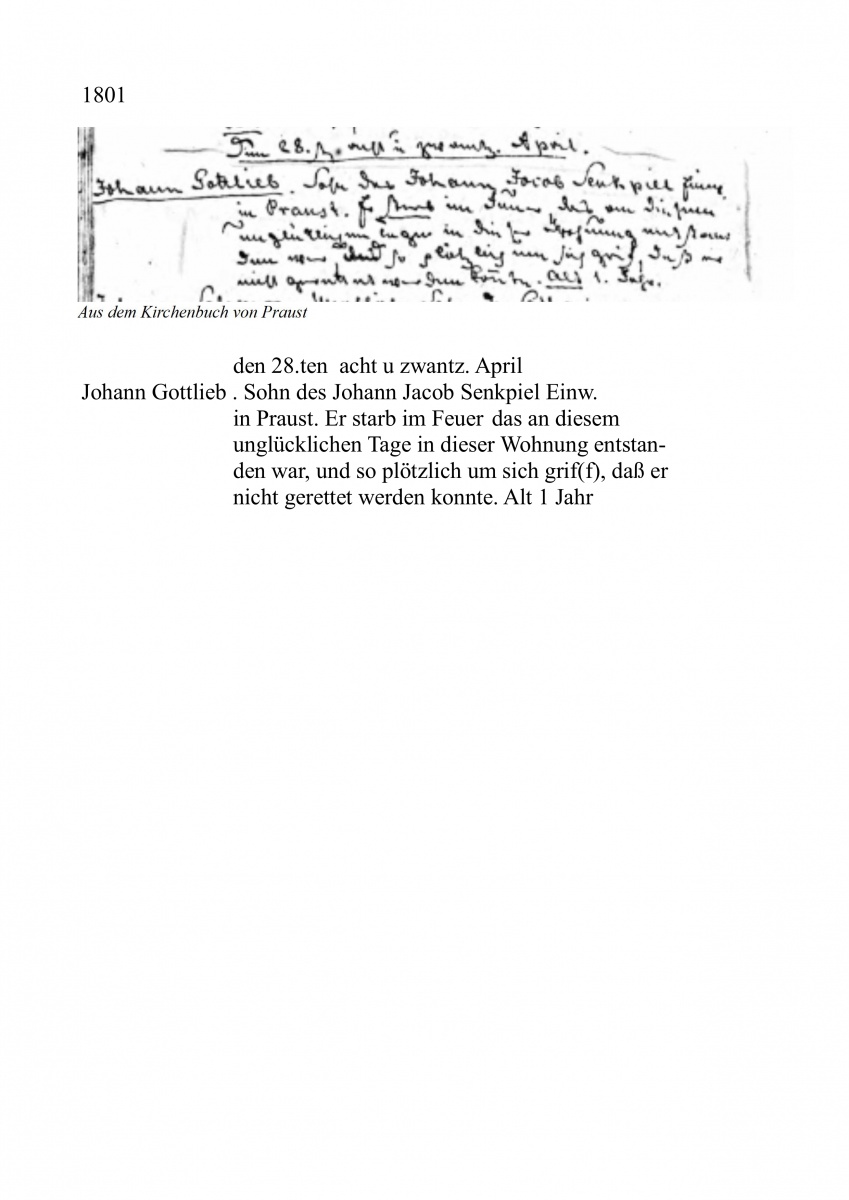 1801
Den 28.t. acht u zwantz. April.
Johann Gottlieb. Sohn des Johann Jacob Senkpiel Einw.
in Praust. Er starb im Feuer das an diesem
unglücklichen Tage in dieser Wohnung entstan
den war, und so plötzlich um sich grif, daß er
nicht gerettet werden konte. Alt 1. Jahr.
Aus dem Kirchenbuch von Praust
den 28.ten acht u zwantz. April
Johann Gottlieb . Sohn des Johann Jacob Senkpiel Einw.
in Praust. Er starb im Feuer das an diesem
unglücklichen Tage in dieser Wohnung entstan-
den war, und so plötzlich um sich grif(f), daß er
nicht gerettet werden konnte. Alt 1 Jahr